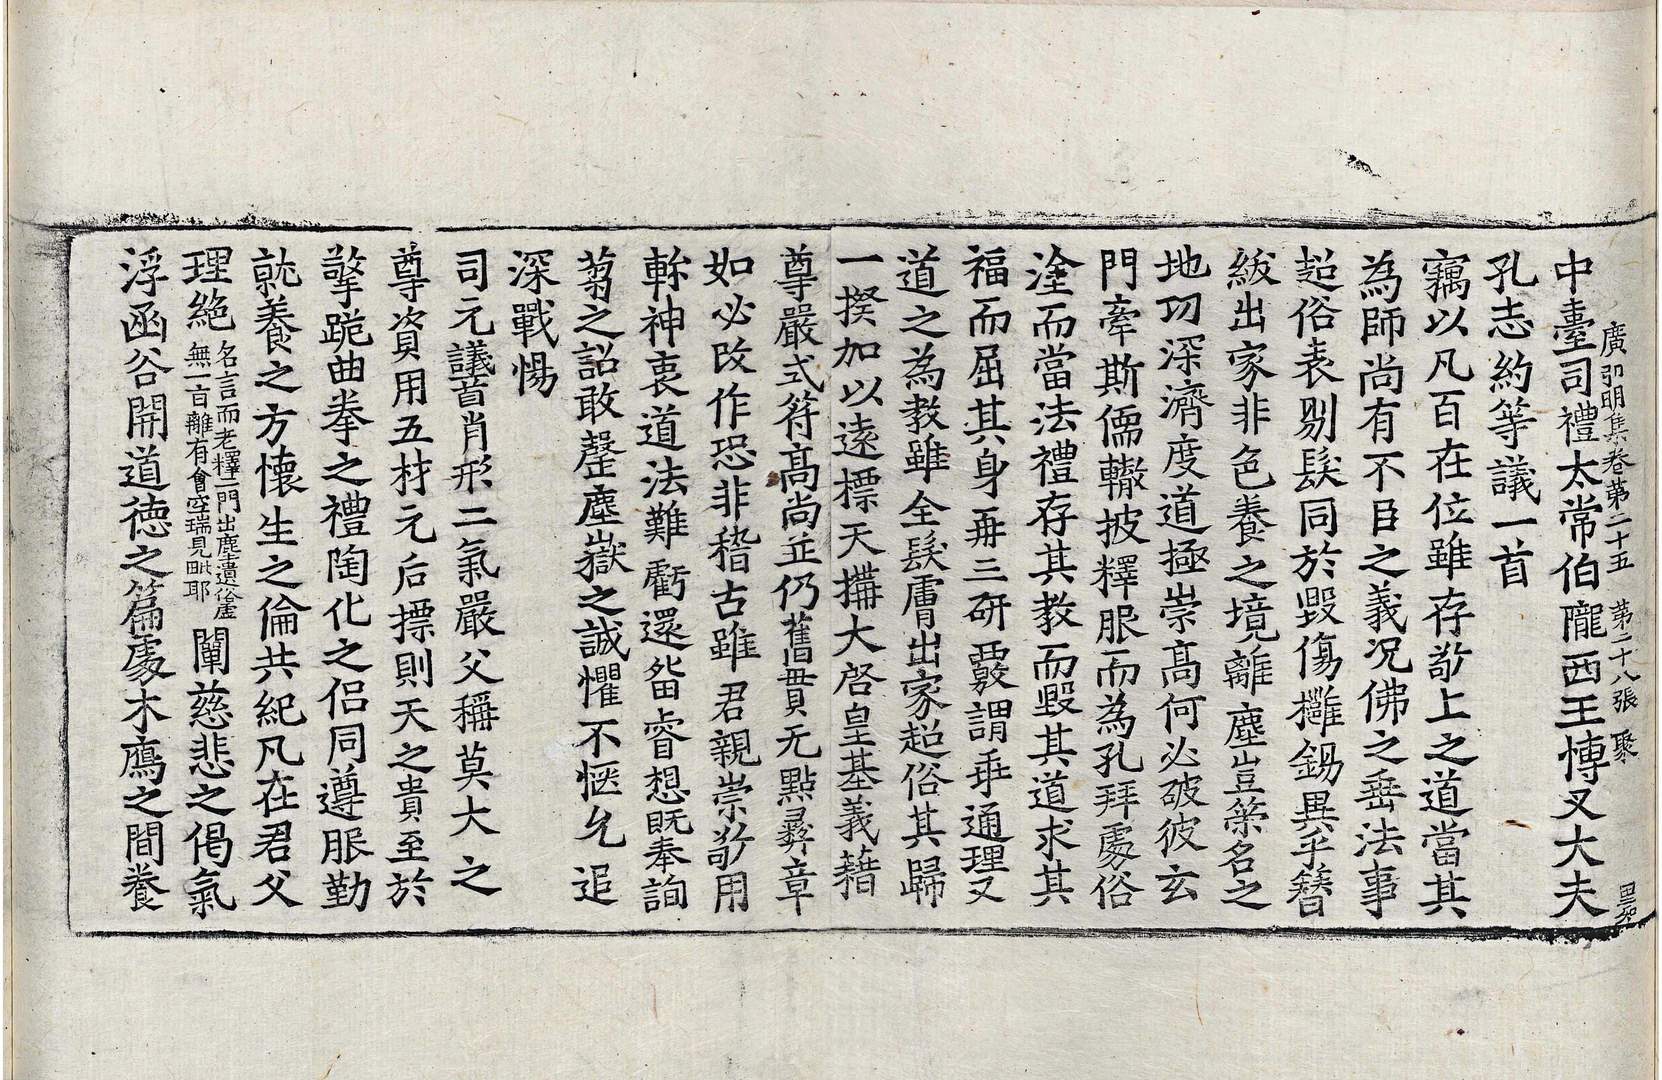 廣弘明集卷第二十五 第二十八張 聚
中臺司禮太常伯隴西王博叉大夫
孔志約等議一首
竊以凡百在位雖存敬上之道當其
為師尚有不臣之義況佛之垂法事
超俗表剔髮同於毀傷擁錫異乎簪
紱出家非色養之境離塵豈榮名之
地功深濟度道極崇高何必破彼玄
門牽斯儒轍披釋服而為孔拜處俗
塗而當法禮存其教而毀其道求其
福而屈其身再三研覈謂乖通理又
道之為教雖全髮膚出家超俗其歸
一揆加以遠標天構大啓皇基義藉
尊嚴式符高尚並仍舊貫无點彝章
如必改作恐非稽古雖君親崇敬用
軫神衷道法難虧還留睿想既奉詢
蒭之詔敢罄塵嶽之誠懼不愜允追
深戰惕
司元議首肖形二氣嚴父稱莫大之
尊資用五材元后摽則天之貴至於
擎跪曲拳之禮陶化之侶同遵服勤
就養之方懷生之倫共紀凡在君父
理絕名言而老釋二門出塵遺俗虛無一旨離有會空瑞見毗耶闡慈悲之偈氣
浮函谷開道德之篇處木鴈之間養